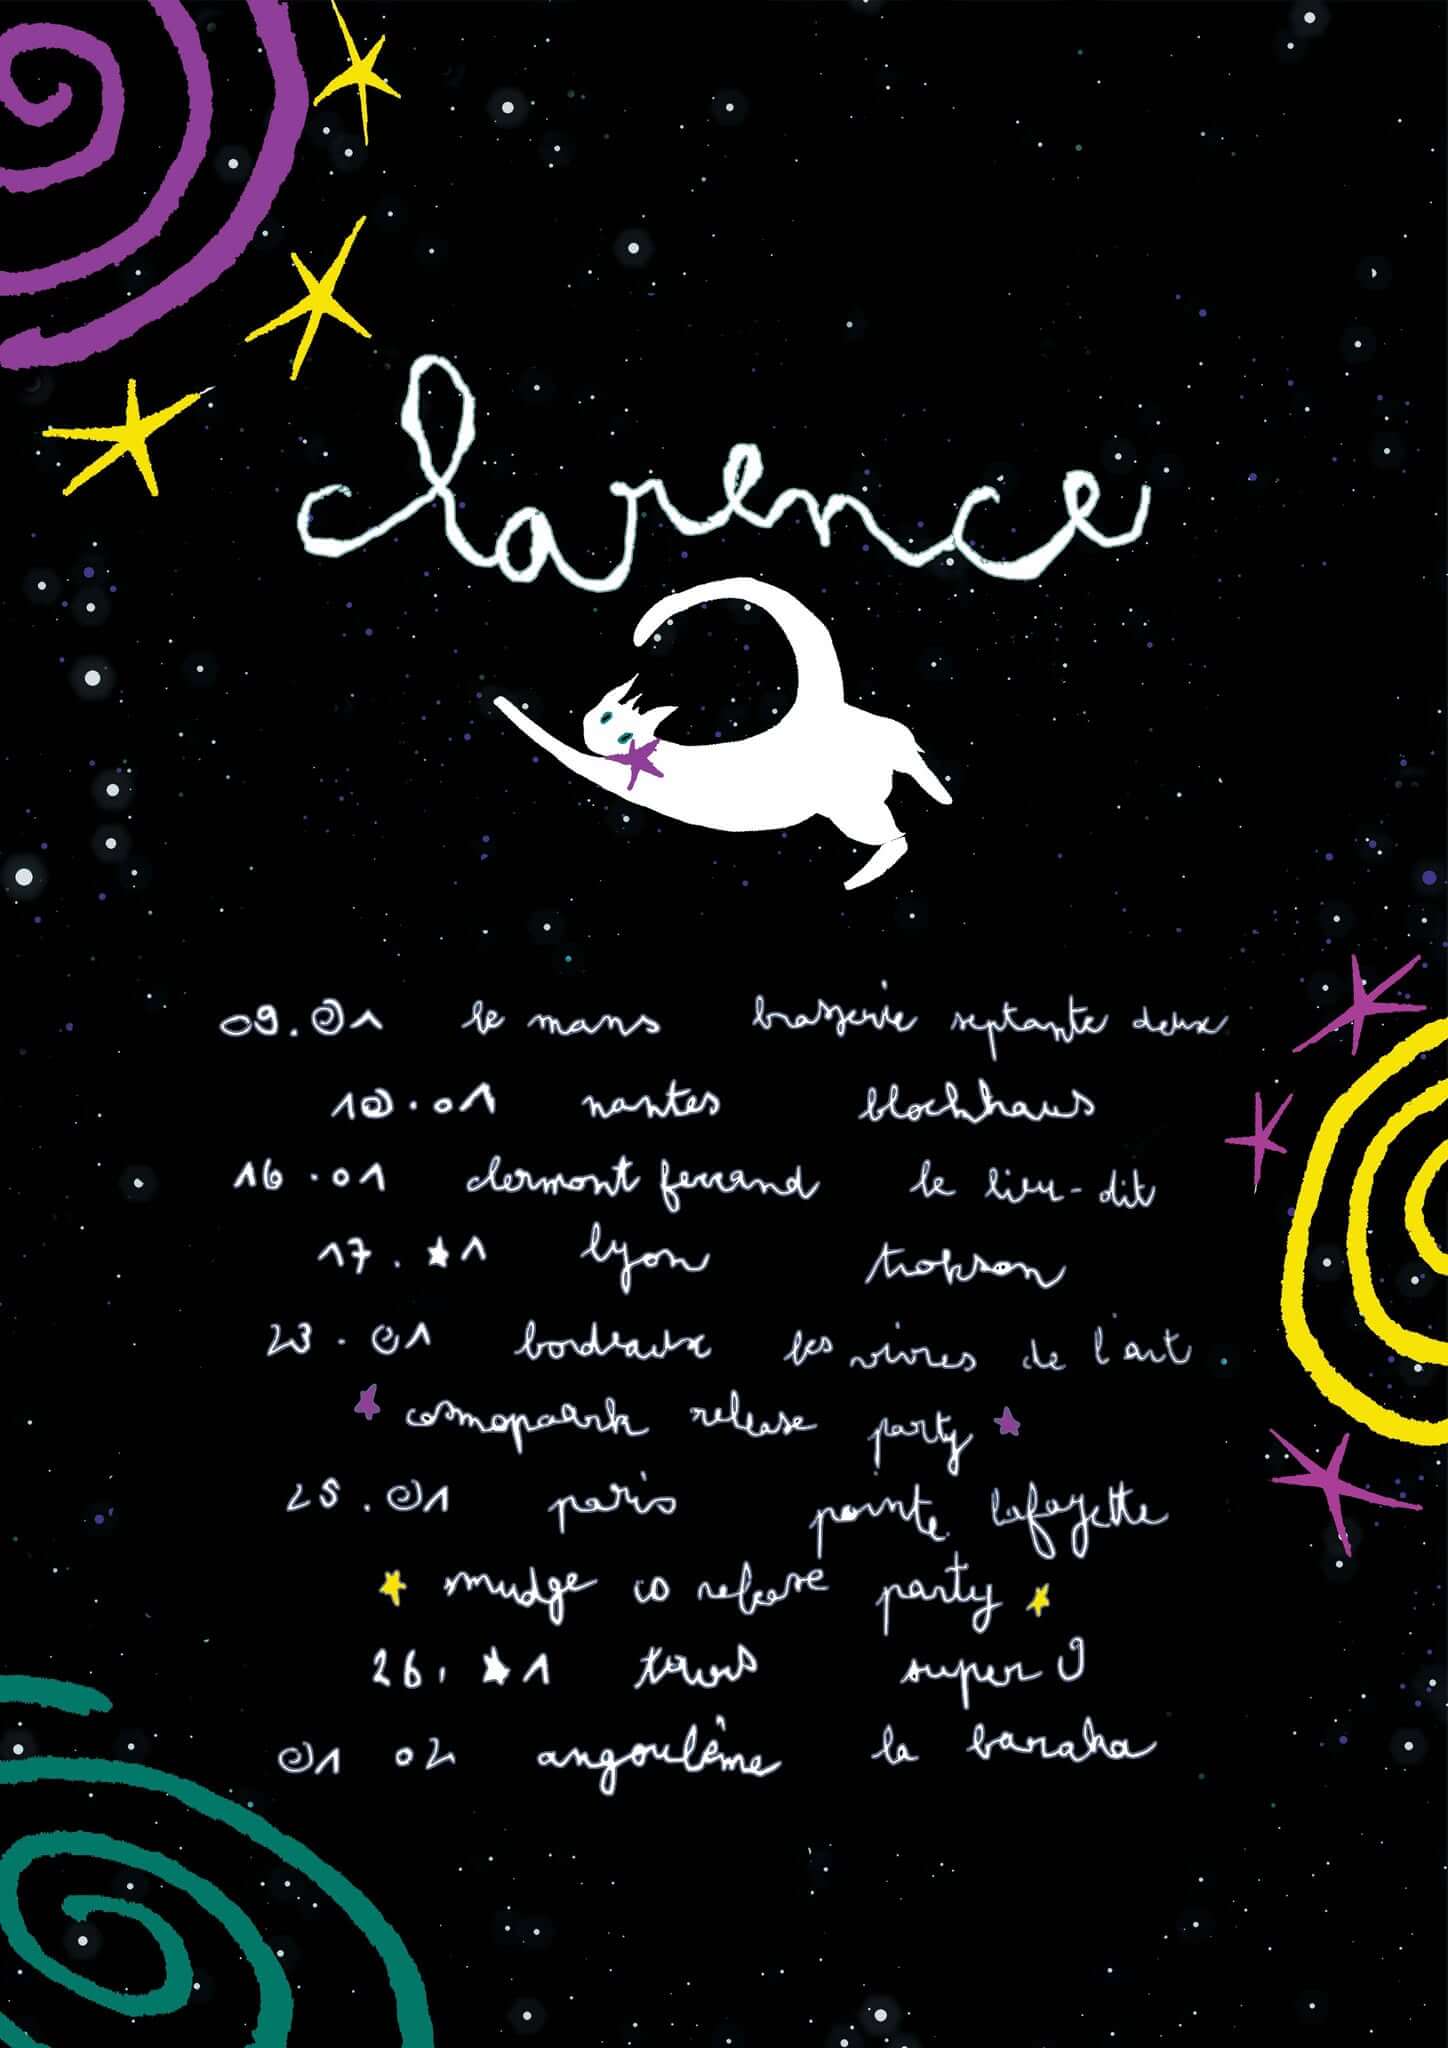 clarence
09.01 le mans brasserie septante deux
10.01 nantes blockhaus
16.01 clermont ferrand le lieu-dit
17.01 lyon trokson
23.01 bordeaux les vivres de l'art
cosmopaark release party
25.01 paris pointe lafayette
smudge co release party
26.01 tours super 9
01 02 angoulême la baraka